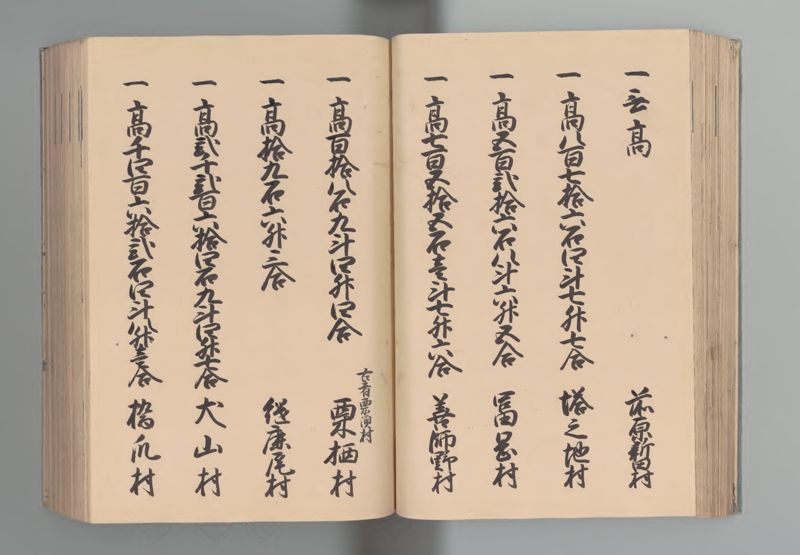 一 無高 前原新田村
一 高八百七拾六石四斗七升七合 塔之地村
一 高五百弐拾六石八斗六升五合 冨岡村
一 高七百五拾五石壱斗七升六合 善師野村
一 高百拾八石九斗四升四合 栗栖村
古者栗洞村
一 高拾九石六升三合 継鹿尾村
一 高弐千弐百六拾四石九斗四升合 犬山村
一 高千四百六拾弐石四斗八升壱合 橋爪村